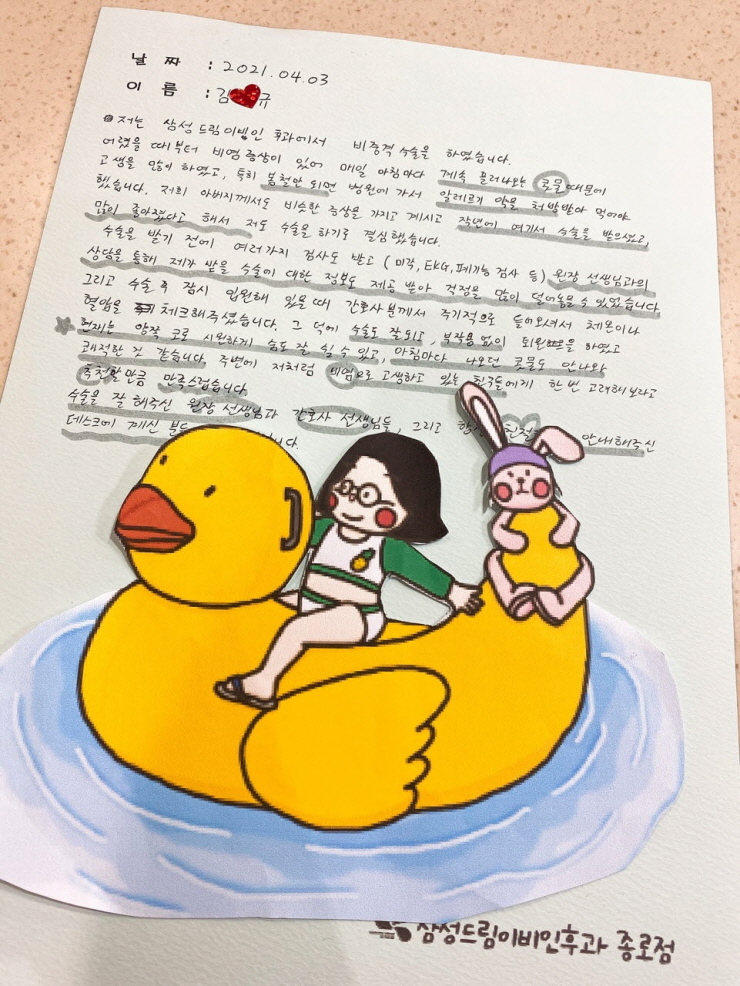 날 짜 : 2021.04.03
이 름 : 김 규
저는 삼성드림이빈인 후과에서 비중격 수술을 하였습니다.
어렸을 때부터 비염 증상이 있어 매일 아침마다 계속 흘러나오는 콧물때문에
고생을 많이 하였고, 특히 봄철만 되면 병원에 가서 알레르기 약을 처방받아 먹어야
했습니다. 저희 아버지께서도 비슷한 증상을 가지고 계시고 작년에 여기서 수술을 받으셨고,
많이 좋아졌다고 해서 저도 수술을 하기로 결심했습니다.
수술을 받기 전에 여러가지 검사도 받고 (미각, EKG, 폐기능 검사 등) 원장 선생님과의
상담을 통해 제가 받을 수술에 대한 정보도 제공 받아 걱정을 많이 덜어놓을 수 있었습니다.
그리고 수술 후 잠시 입원해 있을 때 간호사분께서 주기적으로 들어오셔서 체온이나
혈압을 체크해주셨습니다. 그 덕에 수술도 잘되고, 부작용 없이 퇴원을 하였고
현재는 양쪽 코로 시원하게 숨도 잘 쉴 수 있고, 아침마다 나오던 콧물도 안나와
쾌적한 것 같습니다. 주변에 저처럼 비염으로 고생하고 있는 친구들에게 한 번 고려해보라고
추천할만큼 만족스럽습니다
수술을 잘 해주신 원장 선생님과 간호사 선생님들, 그리고 친절 안내해주신
데스크에 계신 분 니다.
삼성드림이비인후과 종로점